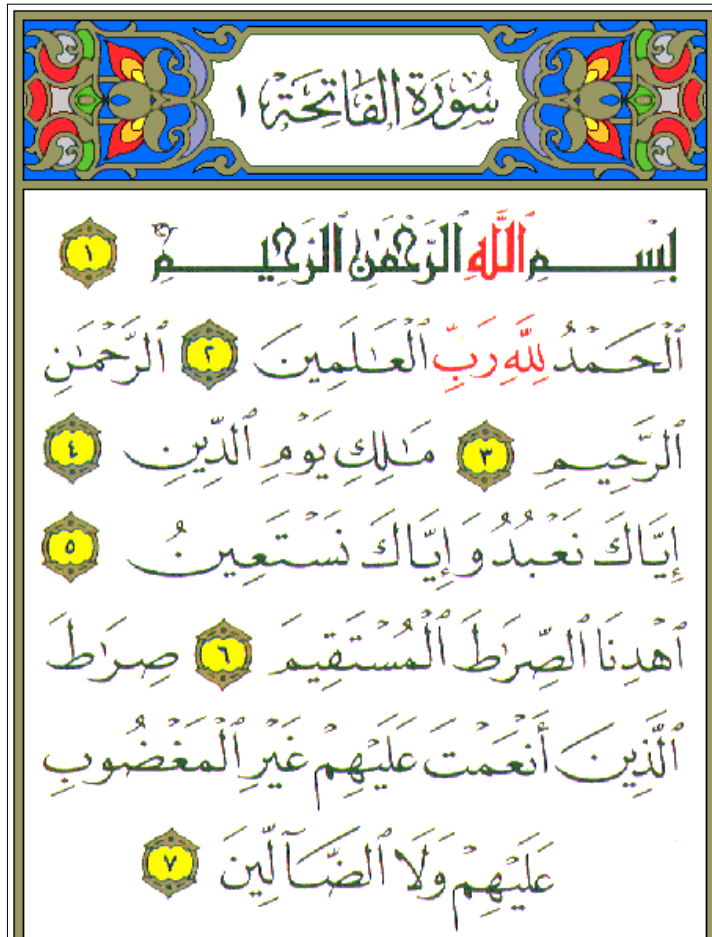 سُورَة الفَاتِحَة ١
بِسْمِ ٱللَّهِ ٱلرَّحْمَٰنِ ٱلرَّحِيمِ ١
ٱلْحَمْدُ لِلَّهِ رَبِّ ٱلْعَٰلَمِينَ ٢ ٱلرَّحْمَٰنِ
ٱلرَّحِيمِ ٣ مَٰلِكِ يَوْمِ ٱلدِّينِ ٤
إِيَّاكَ نَعْبُدُ وَإِيَّاكَ نَسْتَعِينُ ٥
ٱهْدِنَا ٱلصِّرَٰطَ ٱلْمُسْتَقِيمَ ٦ صِرَٰطَ
ٱلَّذِينَ أَنْعَمْتَ عَلَيْهِمْ غَيْرِ ٱلْمَغْضُوبِ
عَلَيْهِمْ وَلَا ٱلضَّآلِّينَ ٧